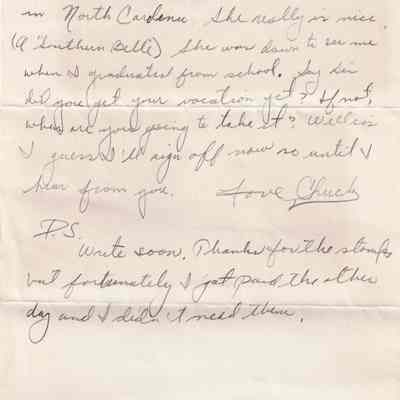 in North Carolina She really is nice.
(A "Southern Belle) She was down to see me
when I graduated from school. Say Sis
did you get your vacation yet? If not,
when are you going to take it? Well Sis
I guess I'll sign off now so until I
hear from you. Love, Chuck
P.S.
Write soon. Thanks for the stamps
but fortunately I got paid the other
day and I didn't need them.